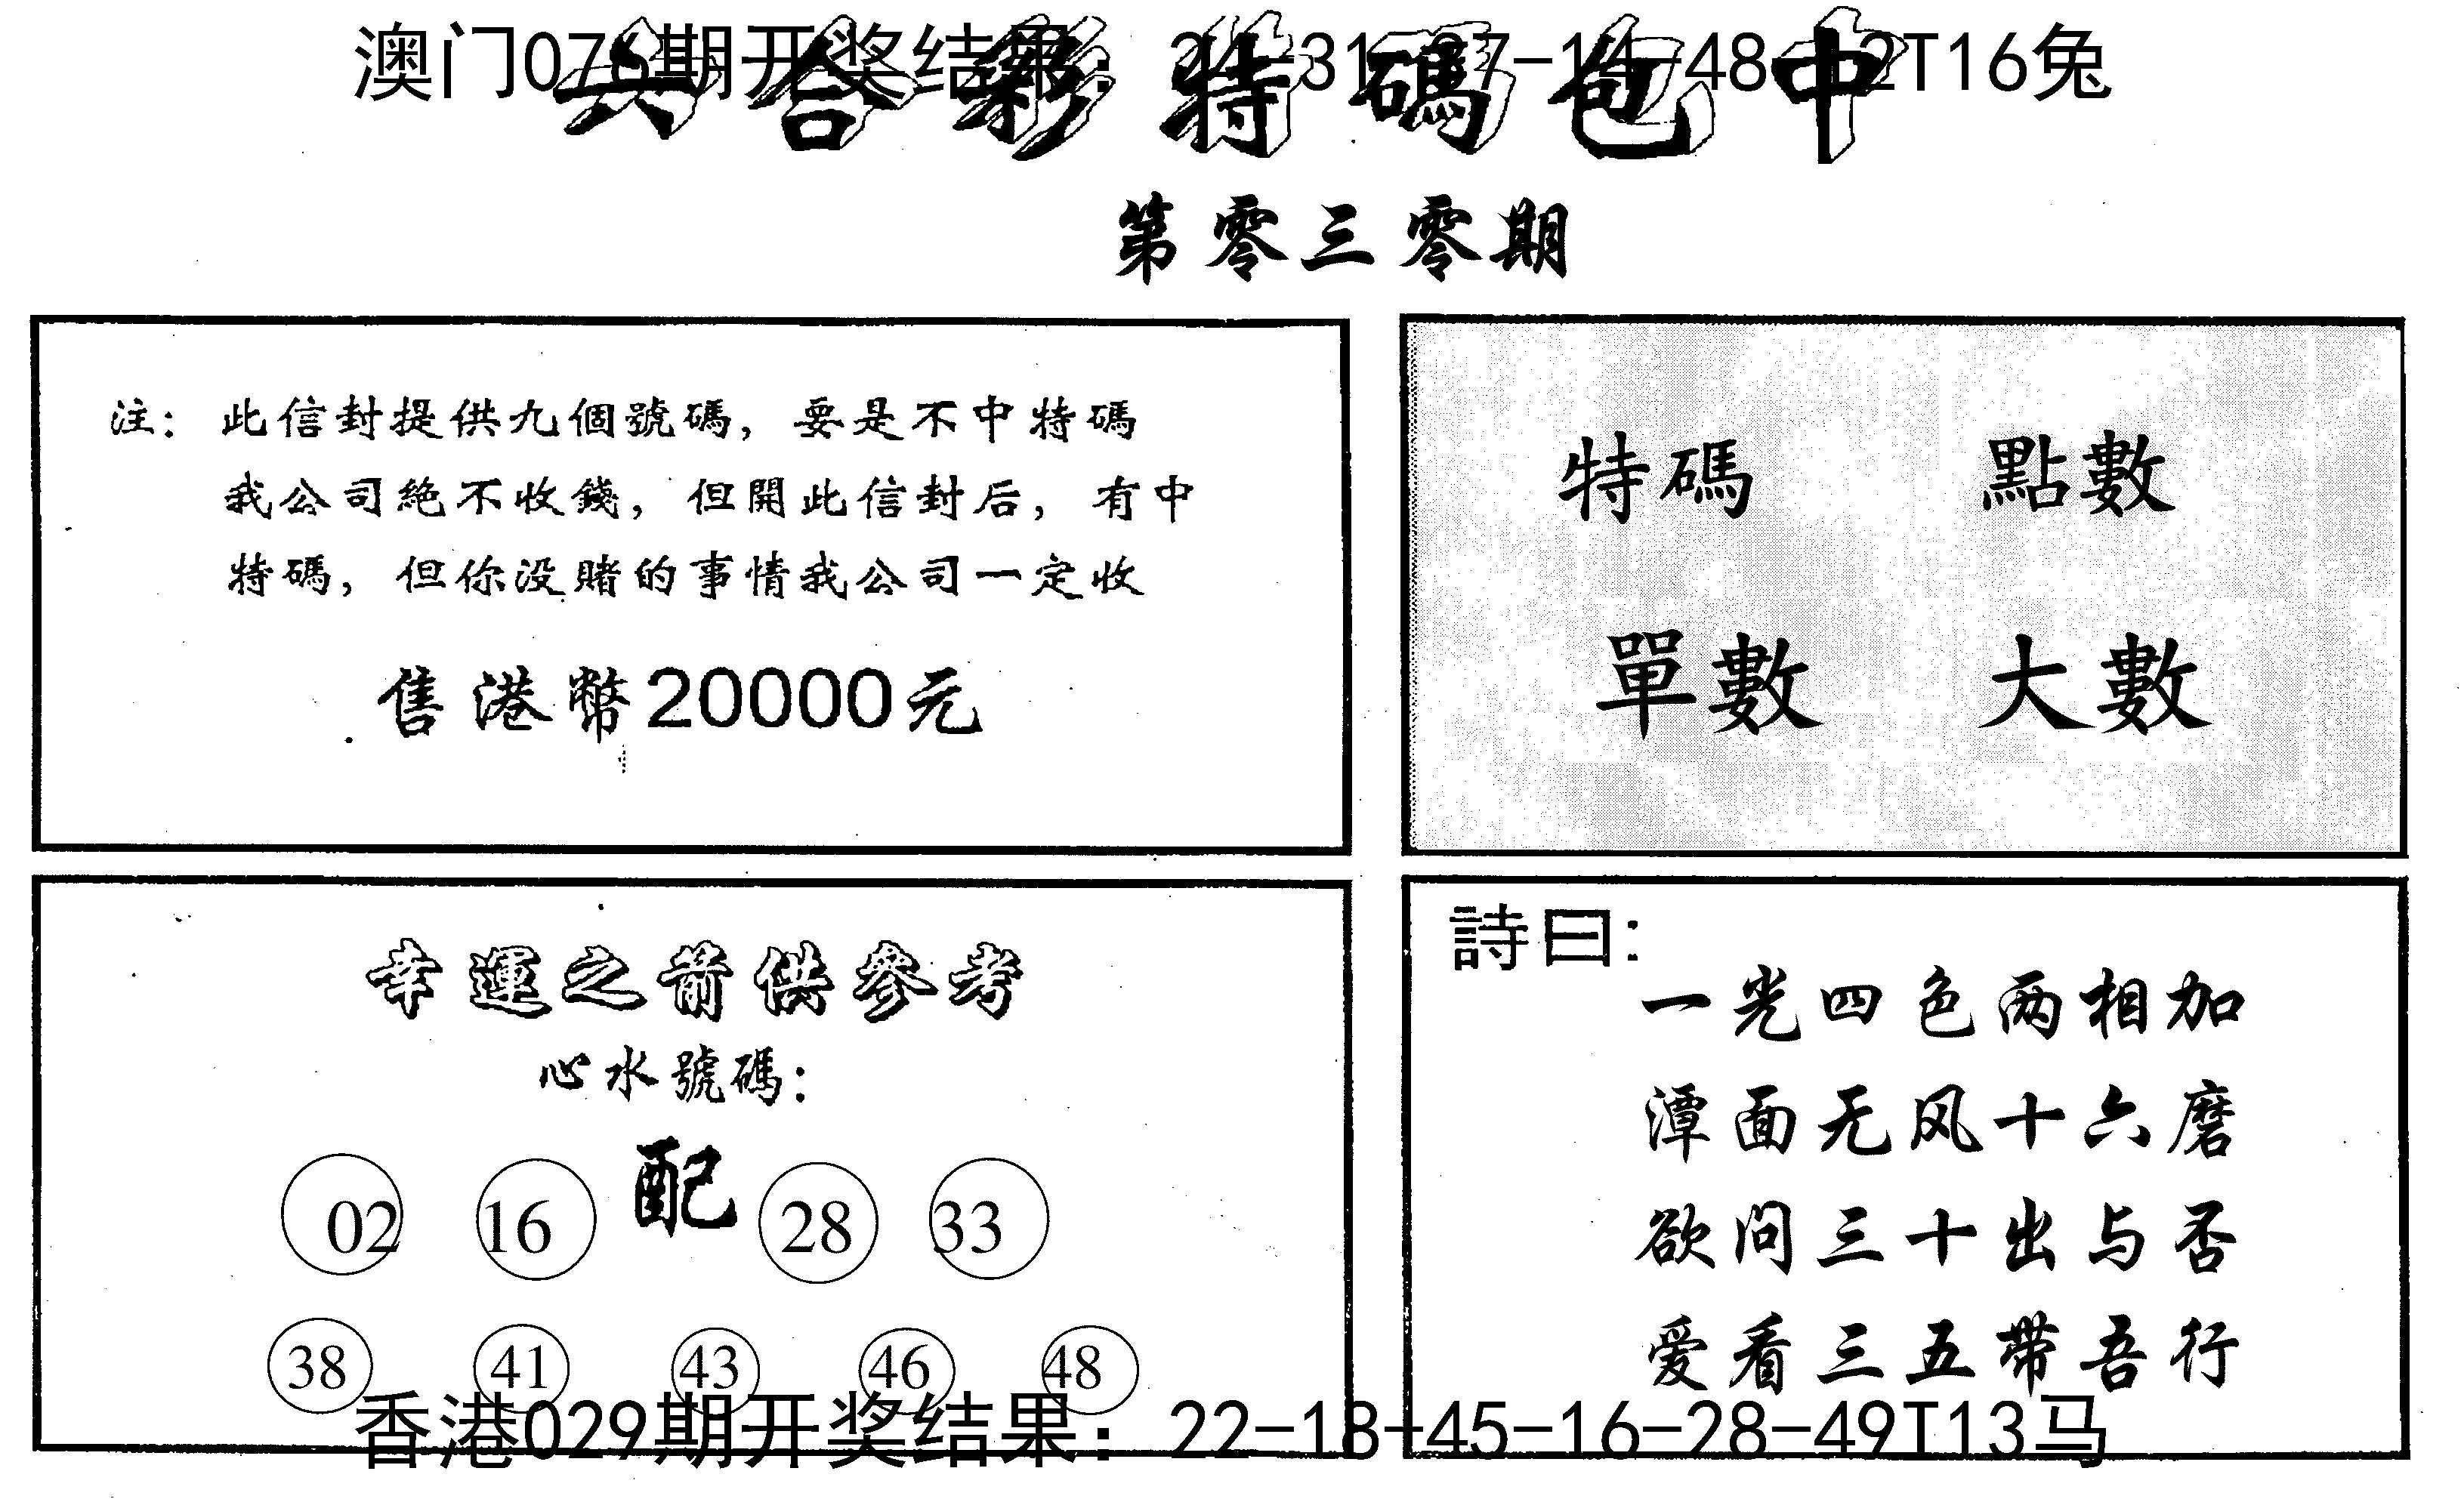 六合彩特碼包中
第零三零期
注：此信封提供九個號碼，要是不中特碼
我公司絕不收錢，但開此信封后，有中
特碼，但你没賭的事情我公司一定收
售港幣20000元
特碼 點數
單數 大數
幸運之箭供參考
心水號碼：
02 16 配 28 33
38 41 43 46 48
詩曰：
一光四色两相加
潭面无风十六磨
欲问三十出与否
爱看三五带吾行
澳门07 期开奖结果： 31 48 2T16兔
香港029期开奖结果：22-18-45-16-28-49T13马